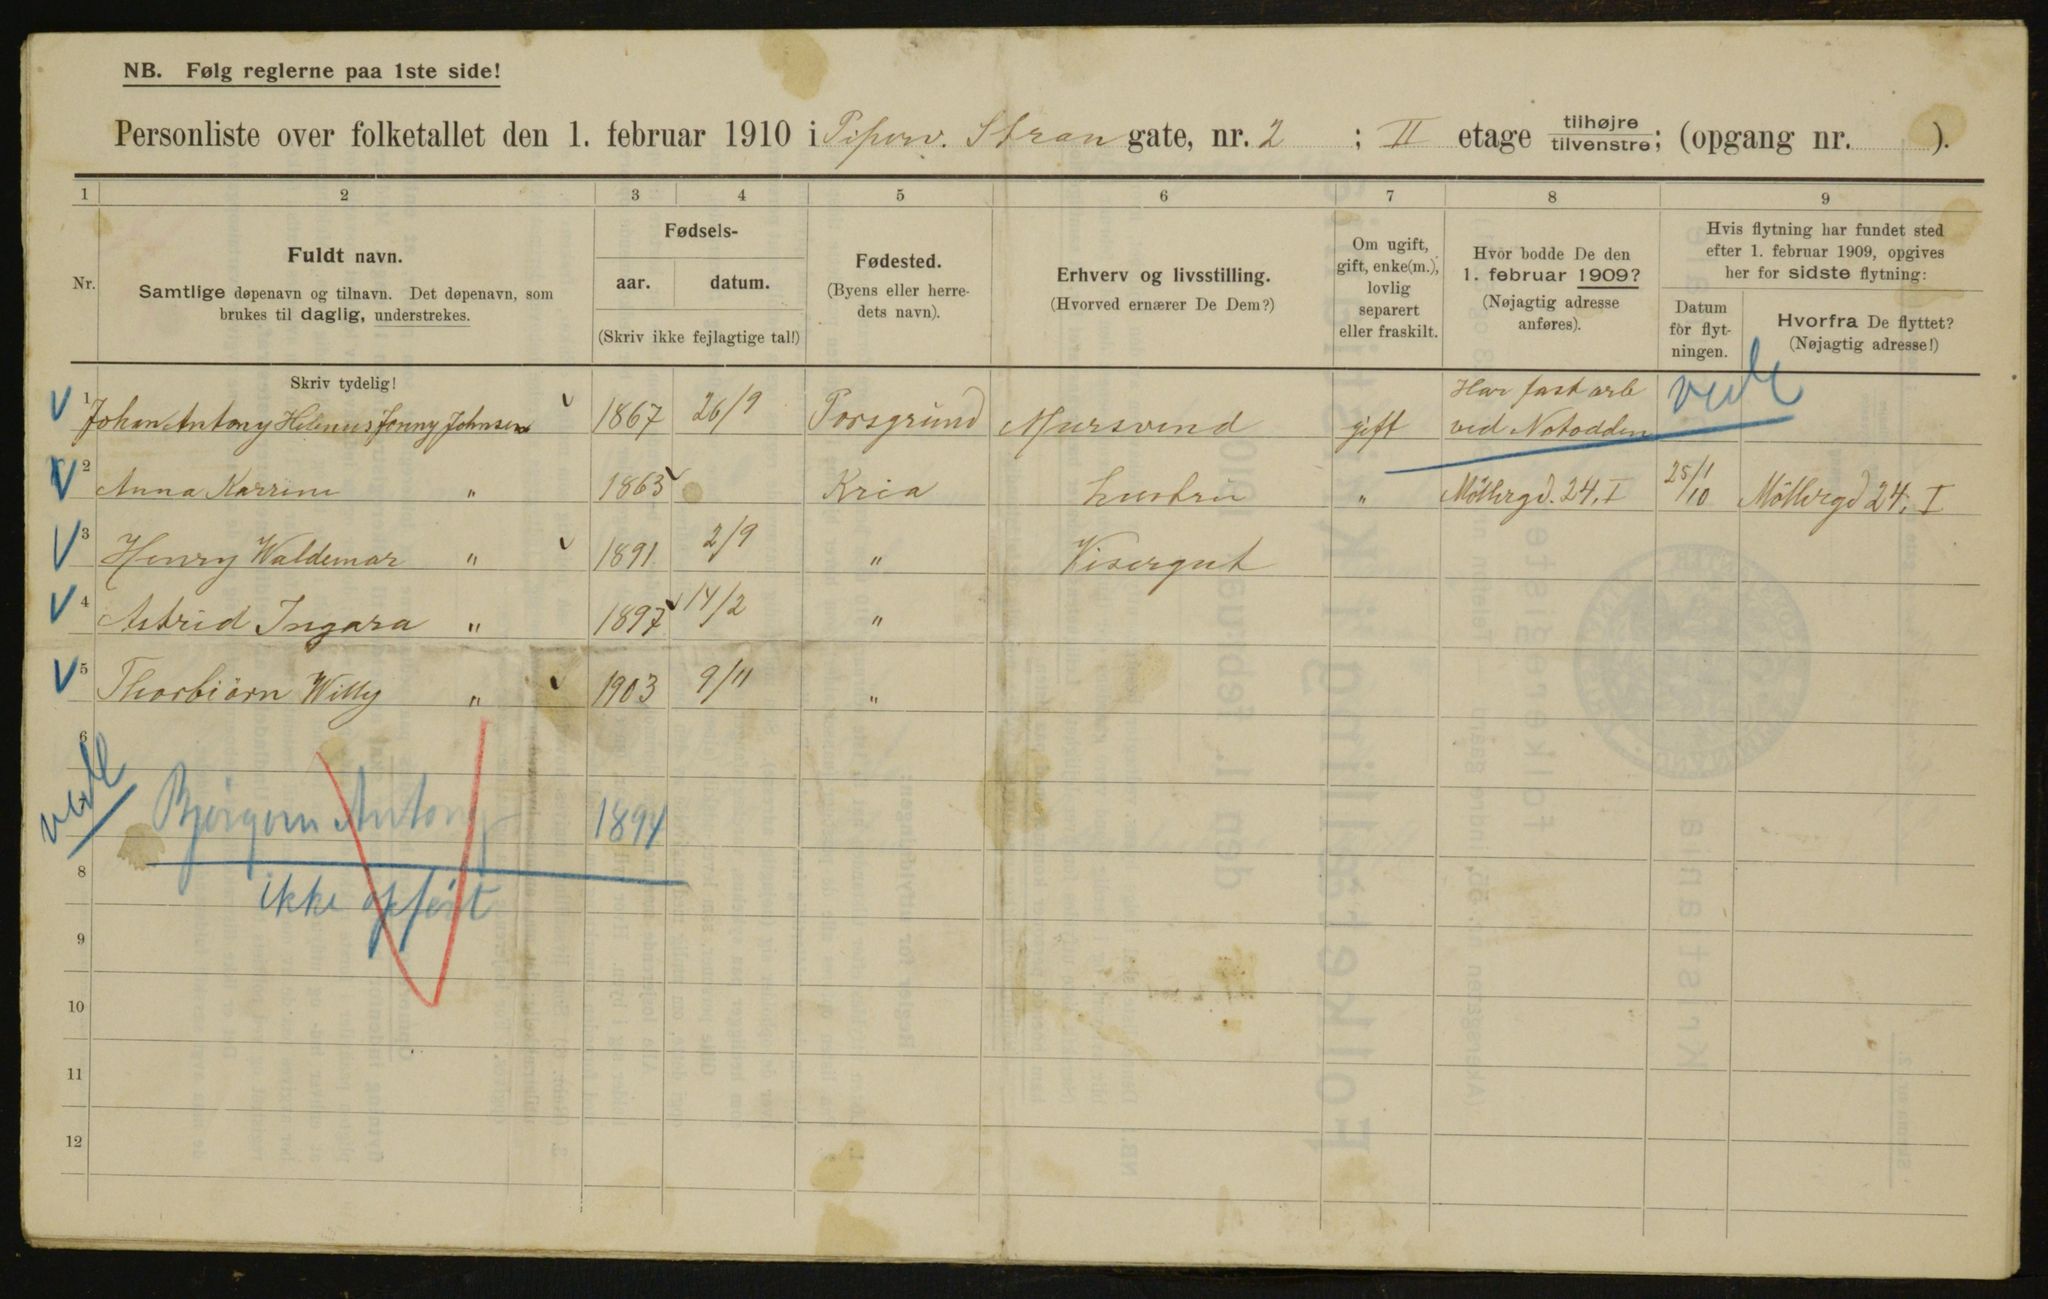 NB. Følg reglerne paa 1ste side!
Personliste over folketallet den 1. februar 1910 i Piperv. Stran gate, nr. 2 ; II etage tilhøjre/tilvenstre; (opgang nr. ).
1 2 3 4 5 6 7 8 9
Nr.
Fuldt navn.
Samtlige døpenavn og tilnavn. Det døpenavn, som
brukes til daglig, understrekes.
Fødsels-
aar. datum.
(Skriv ikke fejlagtige tal!)
Fødested.
(Byens eller herre-
dets navn).
Erhverv og livsstilling.
(Hvorved ernærer De Dem?)
Om ugift,
gift, enke(m.),
lovlig
separert
eller fraskilt.
Hvor bodde De den
1. februar 1909?
(Nøjagtig adresse
anføres).
Hvis flytning har fundet sted
efter 1. februar 1909, opgives
her for sidste flytning:
Datum
før flyt-
ningen.
Hvorfra De flyttet?
(Nøjagtig adresse!)
Skriv tydelig!
1 Johan Antony Helenius Jonny Johnsen 1867 26/9 Porsgrund Mursvend gift Har fast arb
ved Notodden
2 Anna Karrine " 1865 Kria hustru " Möllergd. 24, I 25/1/10 Möllergd 24, I
3 Henry Waldemar " 1891 2/9 " Visergut
4 Astrid Ingara " 1897 14/2 "
5 Thorbiörn Willy " 1903 9/11 "
6
Antony 1894
8
ikke opført
9
10
11
12